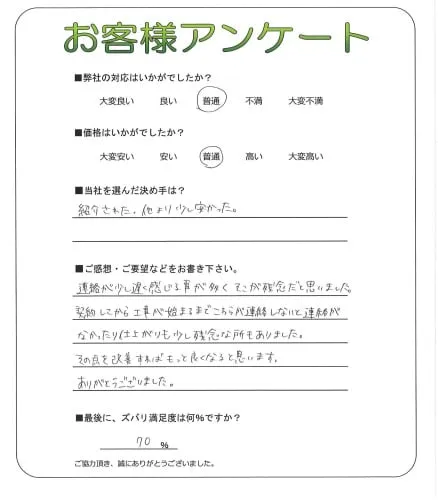 お客様アンケート
■弊社の対応はいかがでしたか？
大変良い 良い 普通 不満 大変不満
■価格はいかがでしたか？
大変安い 安い 普通 高い 大変高い
■当社を選んだ決め手は？
紹介された、他より少し安かった。
■ご感想・ご要望などをお書き下さい。
連絡が少し遅く感じる事が多く そこが残念だと思いました。
契約してから工事が始まるまで こちらが連絡しないと連絡が
なかったり仕上がりも少し残念な所もありました。
その点を改善すればもっと良くなると思います。
ありがとうございました。
■最後に、ズバリ満足度は何％ですか？
70 ％
ご協力頂き、誠にありがとうございました。